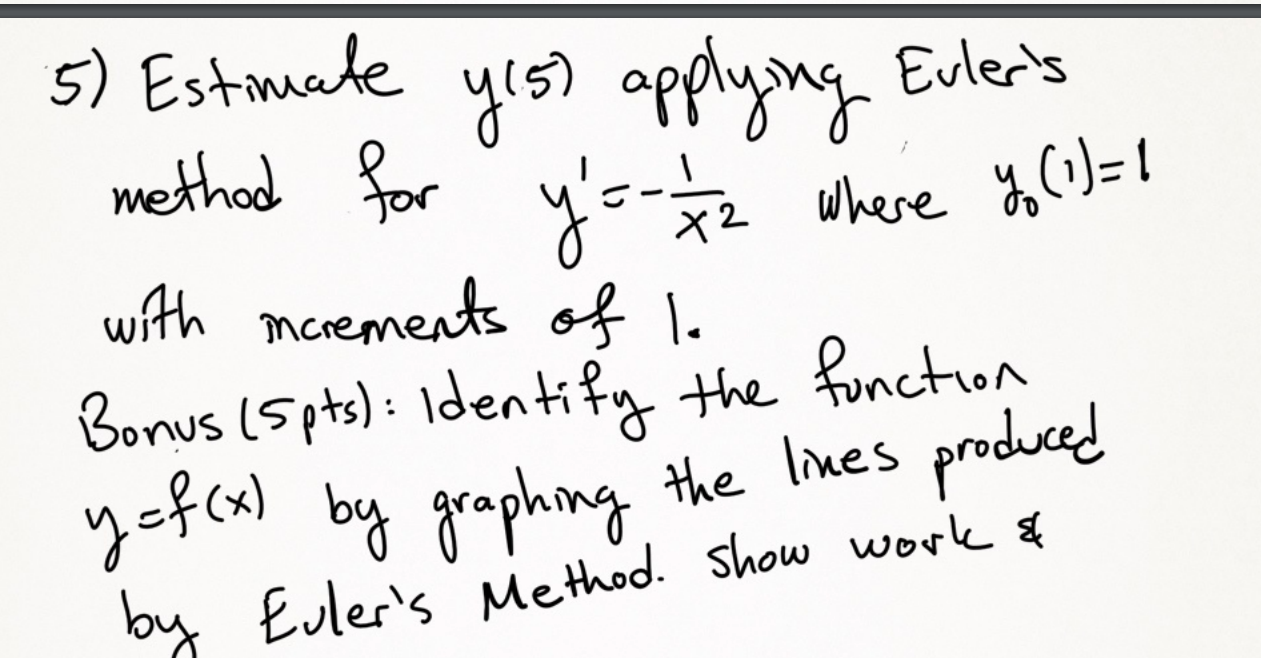 5) Estimate y(5) applying Euler's
method for y' = - 1/x² where y₀(1)=1
with increments of 1.
Bonus (5pts): Identify the function
y=f(x) by graphing the lines produced
by Euler's Method. Show work &